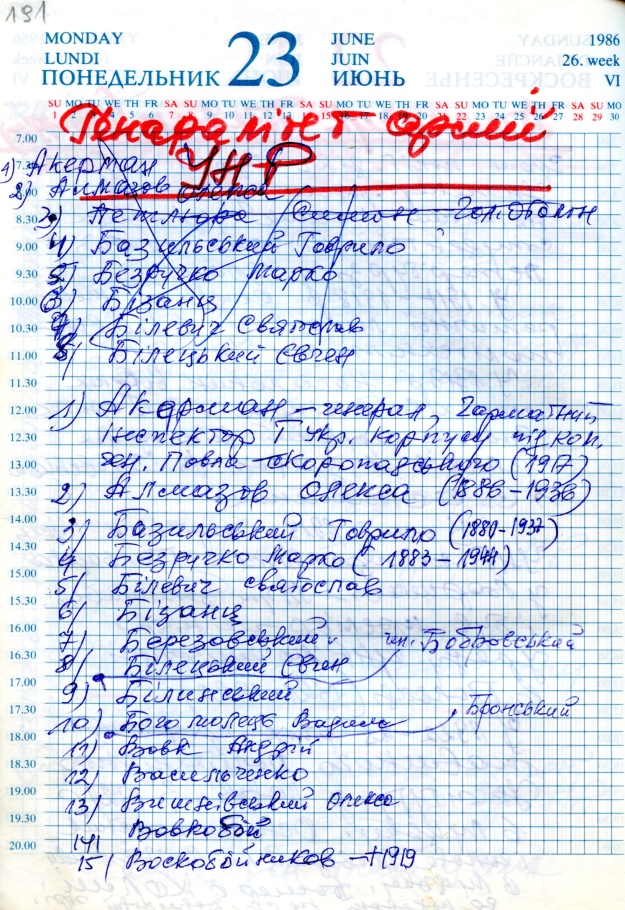 191
MONDAY
LUNDI
ПОНЕДЕЛЬНИК
23
JUNE
JUIN
ИЮНЬ
1986
26. week
VI
SU MO TU WE TH FR SA SU MO TU WE TH FR SA SU MO TU WE TH FR SA SU MO TU WE TH FR SA SU MO
1 2 3 4 5 6 7 8 9 10 11 12 13 14 15 16 17 18 19 20 21 22 23 24 25 26 27 28 29 30
армії
УНР
7.00
1) Акерман
2) Алмазов Олекса
8.30 3) Петлюра Симон Гол. Отаман
9.00 4) Базильський Гаврило
9.30 5) Безручко Марко
10.00 6) Бізанц
10.30 7) Білевич Святослав
11.00 8) Білецький Євген
11.30
12.00 1) Акерман – генерал, Гарматний
12.30 Інспектор I Укр. корпусу під ком.
13.00 ген. Павла Скоропадського (1917)
13.30 2) Алмазов Олекса (1886–1936)
14.00 3) Базильський Гаврило (1880-1937)
14.30 4) Безручко Марко (1883–1944)
15.00 5) Білевич Святослав
15.30 6) Бізанц
16.00 7) Березовський ген. Бобровський
16.30 8) Білецький Євген
17.00 9) Білинський
17.30 10) Богомолець Вадим Бронський
18.00 11) Вовк Андрій
18.30 12) Васильченко
19.00 13) Вишнівський Олекса
19.30 14) Вовкобой
20.00 15) Воскобойников – †1919